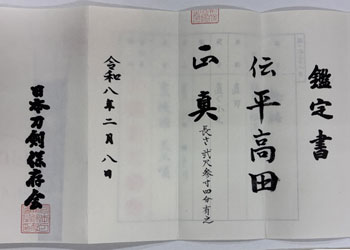 鑑定書
伝平高田
正真
長さ弐尺参寸四分有之
令和八年二月八日
日本刀剣保存会